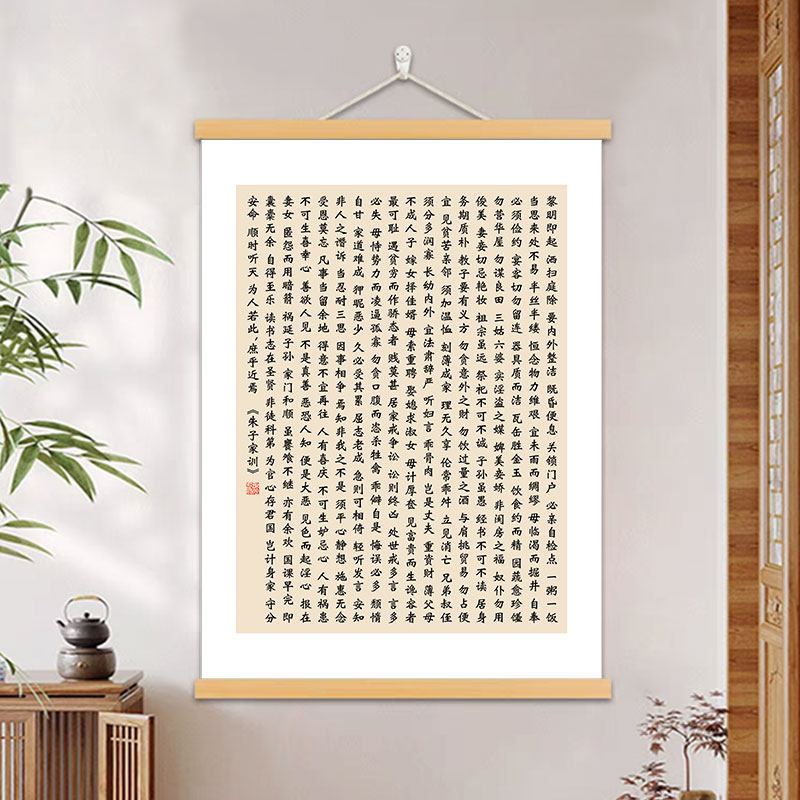 黎明即起 洒扫庭除 要内外整洁 既昏便息 关锁门户 必亲自检点 一粥一饭
当思来处不易 半丝半缕 恒念物力维艰 宜未雨而绸缪 毋临渴而掘井 自奉
必须俭约 宴客切勿留连 器具质而洁 瓦缶胜金玉 饮食约而精 园蔬愈珍馐
勿营华屋 勿谋良田 三姑六婆 实淫盗之媒 婢美妾娇 非闺房之福 奴仆勿用
俊美 妻妾切忌艳妆 祖宗虽远 祭祀不可不诚 子孙虽愚 经书不可不读 居身
务期质朴 教子要有义方 勿贪意外之财 勿饮过量之酒 与肩挑贸易 勿占便
宜 见贫苦亲邻 须加温恤 刻薄成家 理无久享 伦常乖舛 立见消亡 兄弟叔侄
须分多润寡 长幼内外 宜法肃辞严 听妇言 乖骨肉 岂是丈夫 重资财 薄父母
不成人子 嫁女择佳婿 毋索重聘 娶媳求淑女 毋计厚奁 见富贵而生谗容者
最可耻 遇贫穷而作骄态者 贱莫甚 居家戒争讼 讼则终凶 处世戒多言 言多
必失 毋恃势力而凌逼孤寡 勿贪口腹而恣杀牲禽 乖僻自是 悔误必多 颓惰
自甘 家道难成 狎昵恶少 久必受其累 屈志老成 急则可相倚 轻听发言 安知
非人之谮诉 当忍耐三思 因事相争 焉知非我之不是 须平心静想 施惠无念
受恩莫忘 凡事当留余地 得意不宜再往 人有喜庆 不可生妒忌心 人有祸患
不可生喜幸心 善欲人见 不是真善 恶恐人知 便是大恶 见色而起淫心 报在
妻女 匿怨而用暗箭 祸延子孙 家门和顺 虽饔飧不继 亦有余欢 国课早完 即
囊橐无余 自得至乐 读书志在圣贤 非徒科第 为官心存君国 岂计身家 守分
安命 顺时听天 为人若此，庶乎近焉 《朱子家训》